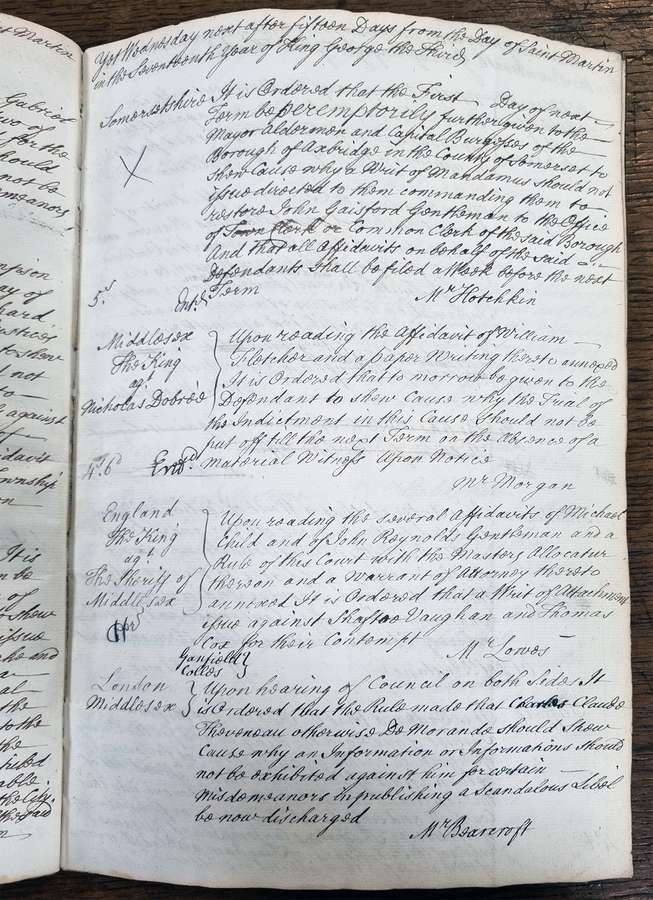 Yet Wednesday next after fifteen Days from the Day of Saint Martin
in the Seventeenth Year of King George the Third
Somersetshire It is Ordered that the First Day of next
Term be peremptorily further given to the
Mayor Aldermen and Capital Burgesses of the
Borough of Axbridge in the County of Somerset to
shew Cause why a Writ of Mandamus should not
issue directed to them commanding them to
restore John Gaisford Gentleman to the Office
of Town Clerk or Common Clerk of the said Borough
And that all Affidavits on behalf of the said
Defendants shall be filed a Week before the next
Term
5.s Entd Mr Hotchkin
Middlesex Upon reading the Affidavit of William
The King Fletcher and a paper Writing thereto annexed
agt It is Ordered that to morrow be given to the
Nicholas Dobreé Defendant to shew Cause why the Trial of
the Indictment in this Cause should not be
put off till the next Term on the Absence of a
4.s 6d Entd Material Witness Upon Notice
Mr Morgan
England Upon reading the several Affidavits of Michael
The King Child and of John Reynolds Gentleman and a
agt Rule of this Court with the Masters Allocatur
The Sheriff of thereon and a Warrant of Attorney thereto
Middlesex annexed It is Ordered that a Writ of Attachment
issue against Shaftoe Vaughan and Thomas
Cox for their Contempt Mr Lowes
Ganfield
Colles
London Upon hearing of Council on both Sides It
Middlesex is Ordered that the Rule made that Charles Claude
Theveneau otherwise De Morande should shew
Cause why an Information or Informations should
not be exhibited against him for certain
misdemeanors in publishing a Scandalous Libel
be now discharged
Mr Bearcroft